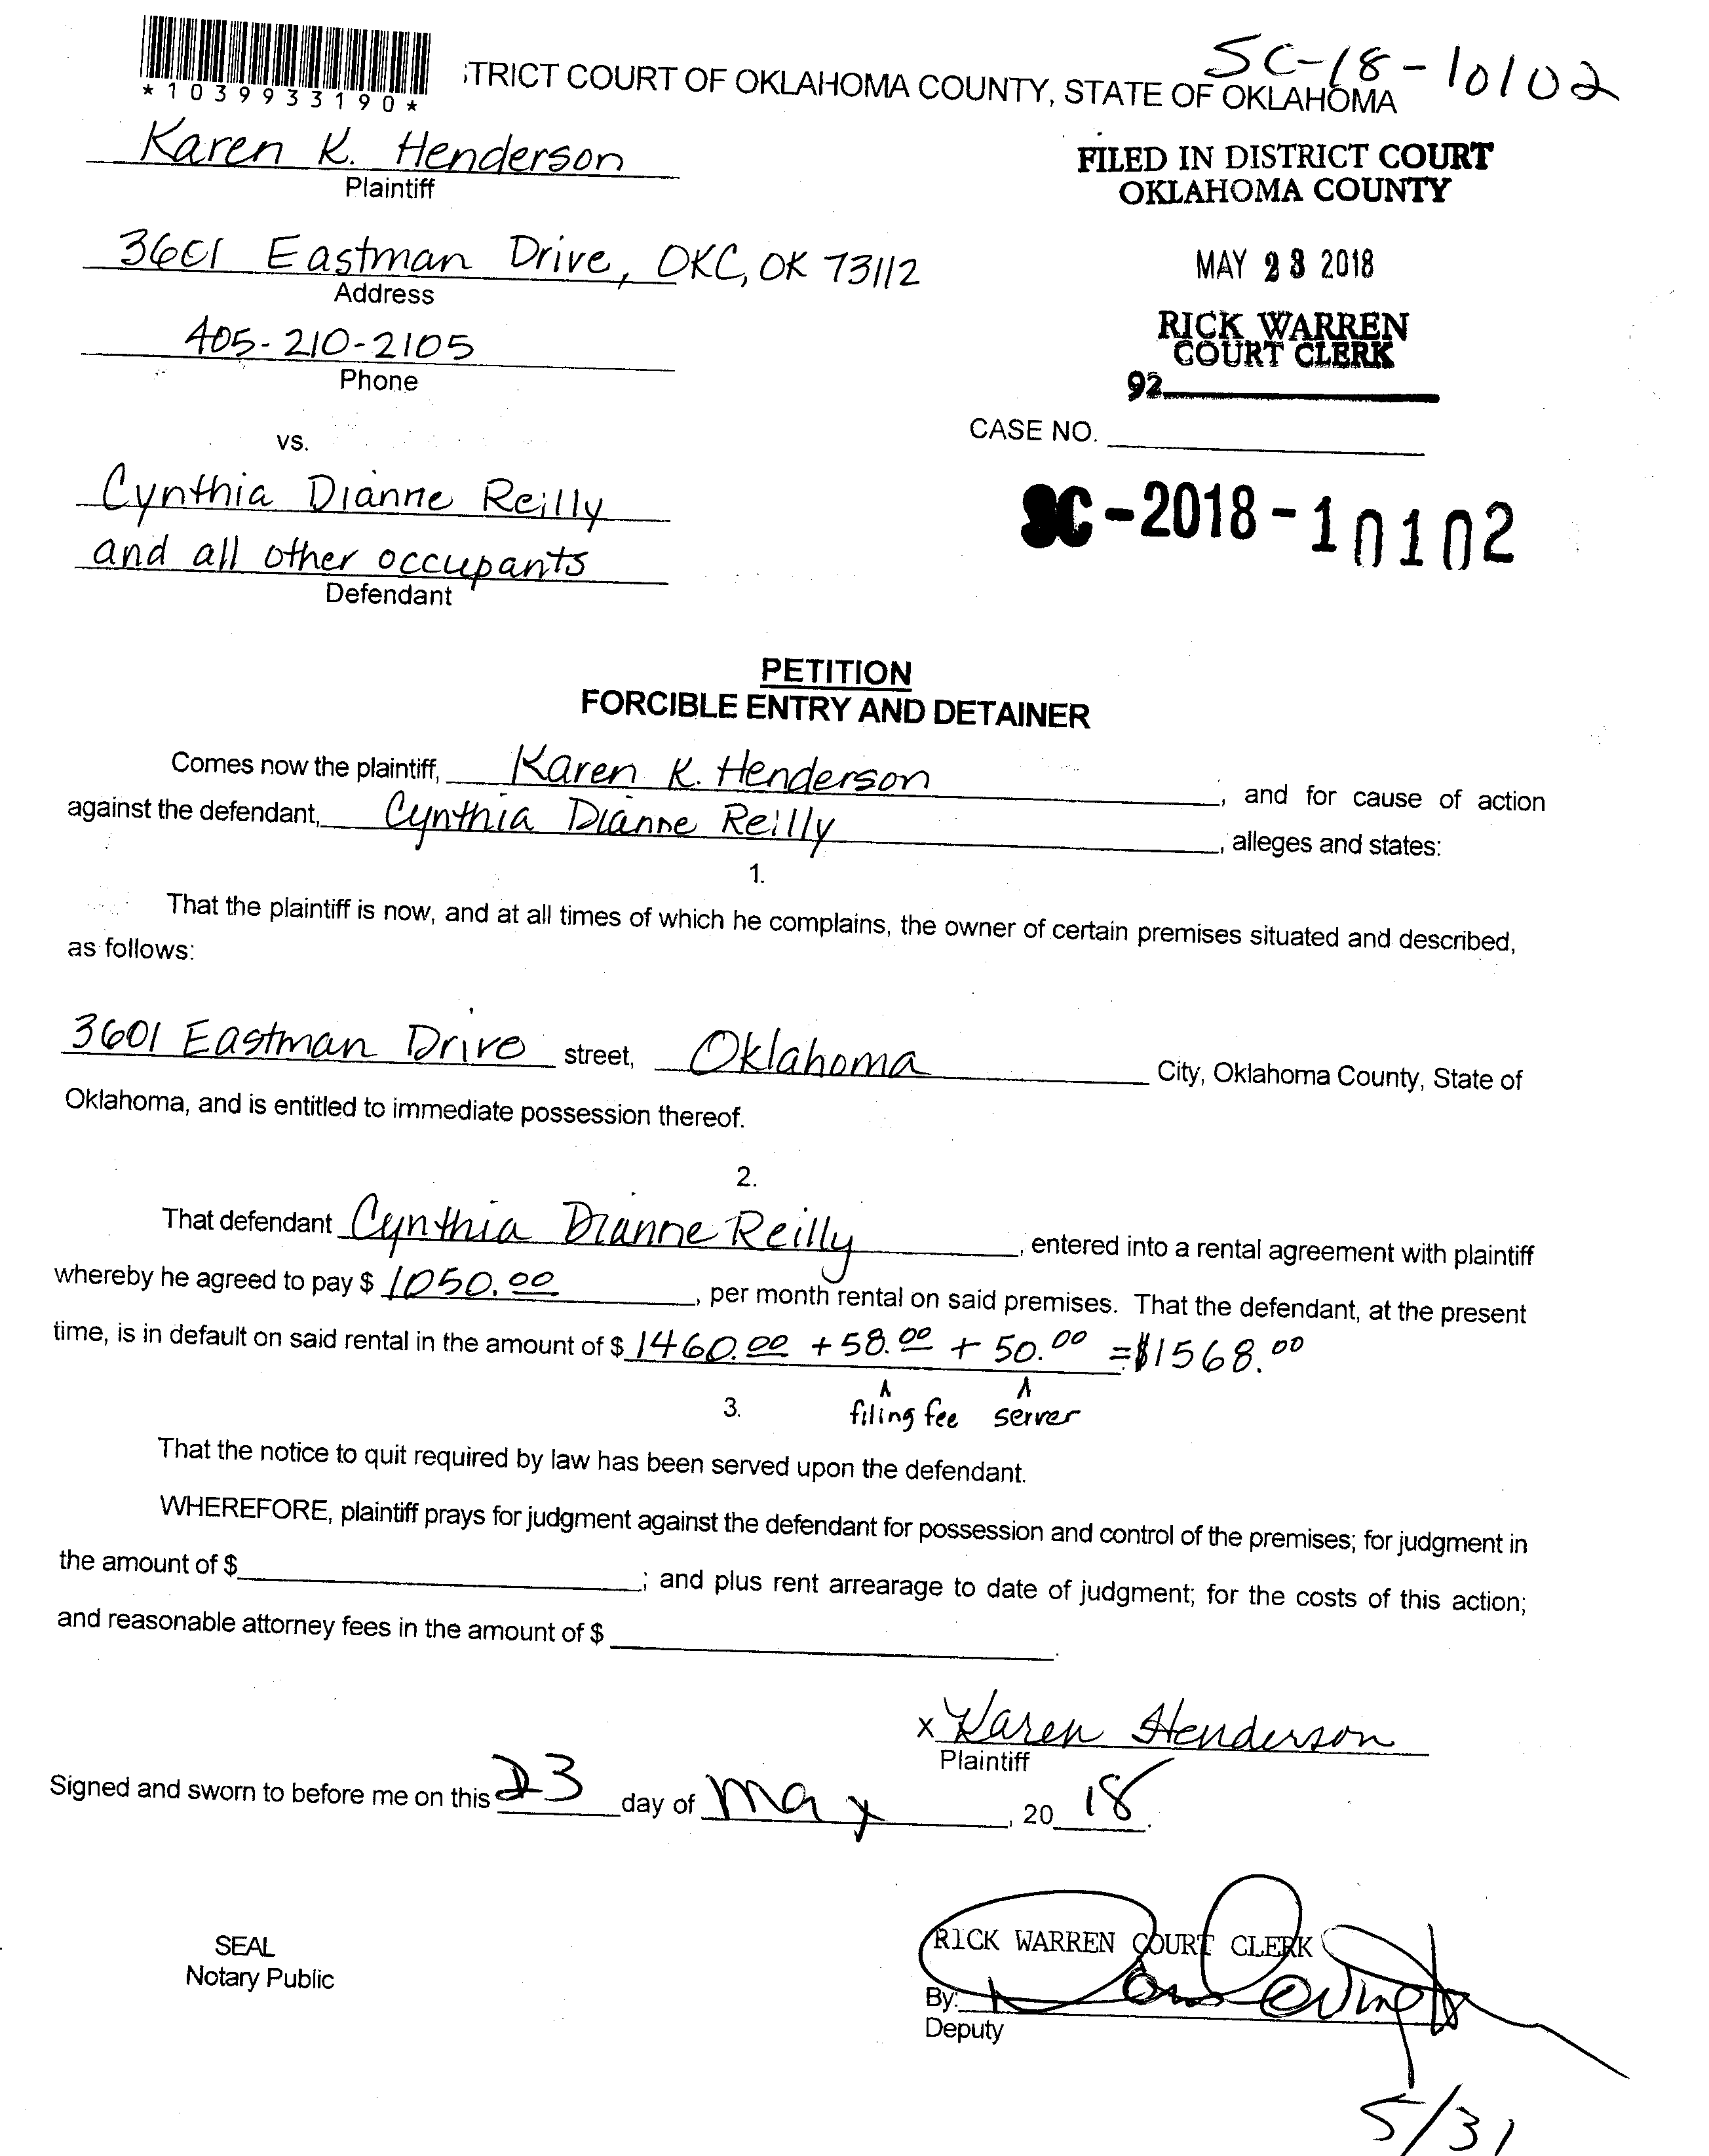 SC-18-10102
*1039933190*
TRICT COURT OF OKLAHOMA COUNTY, STATE OF OKLAHOMA
Karen K. Henderson
Plaintiff
FILED IN DISTRICT COURT
OKLAHOMA COUNTY
3601 Eastman Drive, OKC, OK 73112
Address
MAY 23 2018
405-210-2105
Phone
RICK WARREN
COURT CLERK
92
vs.
CASE NO.
SC-2018-10102
Cynthia Dianne Reilly
and all other occupants
Defendant
PETITION
FORCIBLE ENTRY AND DETAINER
Comes now the plaintiff, Karen K. Henderson, and for cause of action
against the defendant, Cynthia Dianne Reilly, alleges and states:
1.
That the plaintiff is now, and at all times of which he complains, the owner of certain premises situated and described,
as follows:
3601 Eastman Drive street, Oklahoma City, Oklahoma County, State of
Oklahoma, and is entitled to immediate possession thereof.
2.
That defendant Cynthia Dianne Reilly, entered into a rental agreement with plaintiff
whereby he agreed to pay $ 1050.00, per month rental on said premises. That the defendant, at the present
time, is in default on said rental in the amount of $ 1460.00 + 58.00 + 50.00 = $1568.00
filing fee server
3.
That the notice to quit required by law has been served upon the defendant.
WHEREFORE, plaintiff prays for judgment against the defendant for possession and control of the premises; for judgment in
the amount of $ ; and plus rent arrearage to date of judgment; for the costs of this action;
and reasonable attorney fees in the amount of $ .
x Karen Henderson
Plaintiff
Signed and sworn to before me on this 23 day of May, 20 18.
SEAL
Notary Public
RICK WARREN COURT CLERK
By:
Deputy
5/31